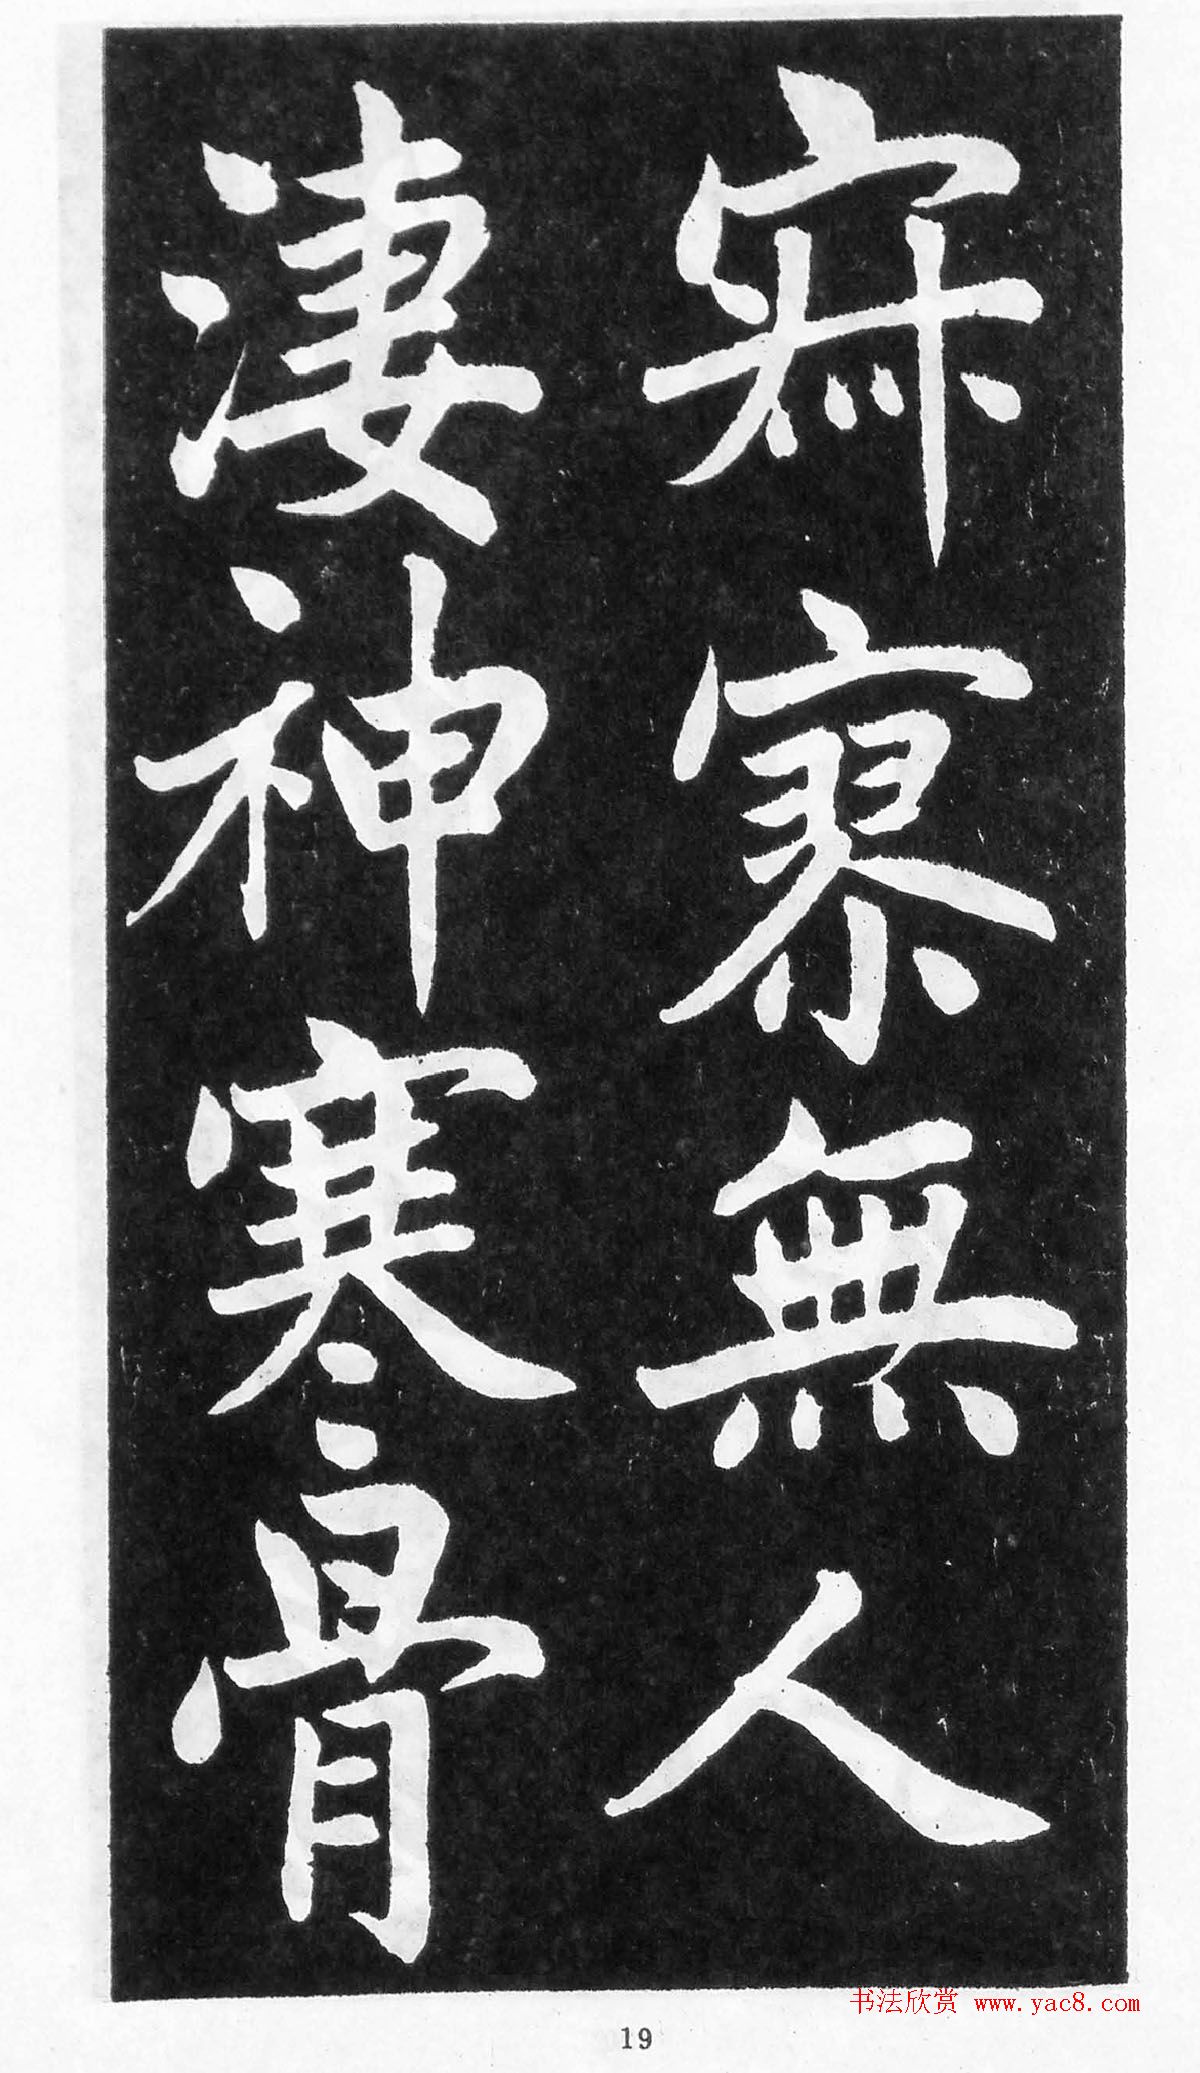 寂寥無人
淒神寒骨
书法欣赏 www.yac8.com
19